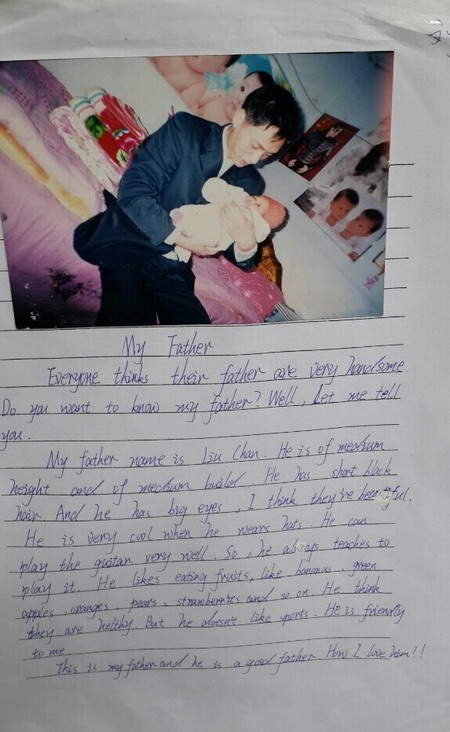 My Father
Everyone thinks their father are very handsome
Do you want to know my father? Well, Let me tell
you.
My father name is Liu Chan. He is of medium
height and of medium build. He has short black
hair. And he has big eyes, I think they're beautiful.
He is very cool when he wears hats. He can
play the guitar very well. So, he always teaches to
play it. He likes eating fruits, like bananas, green
apples, oranges, pears, strawberries and so on. He think
they are helthy But he doesn't like sports. He is friendly
to me.
This is my father and he is a good father. How I love him!!